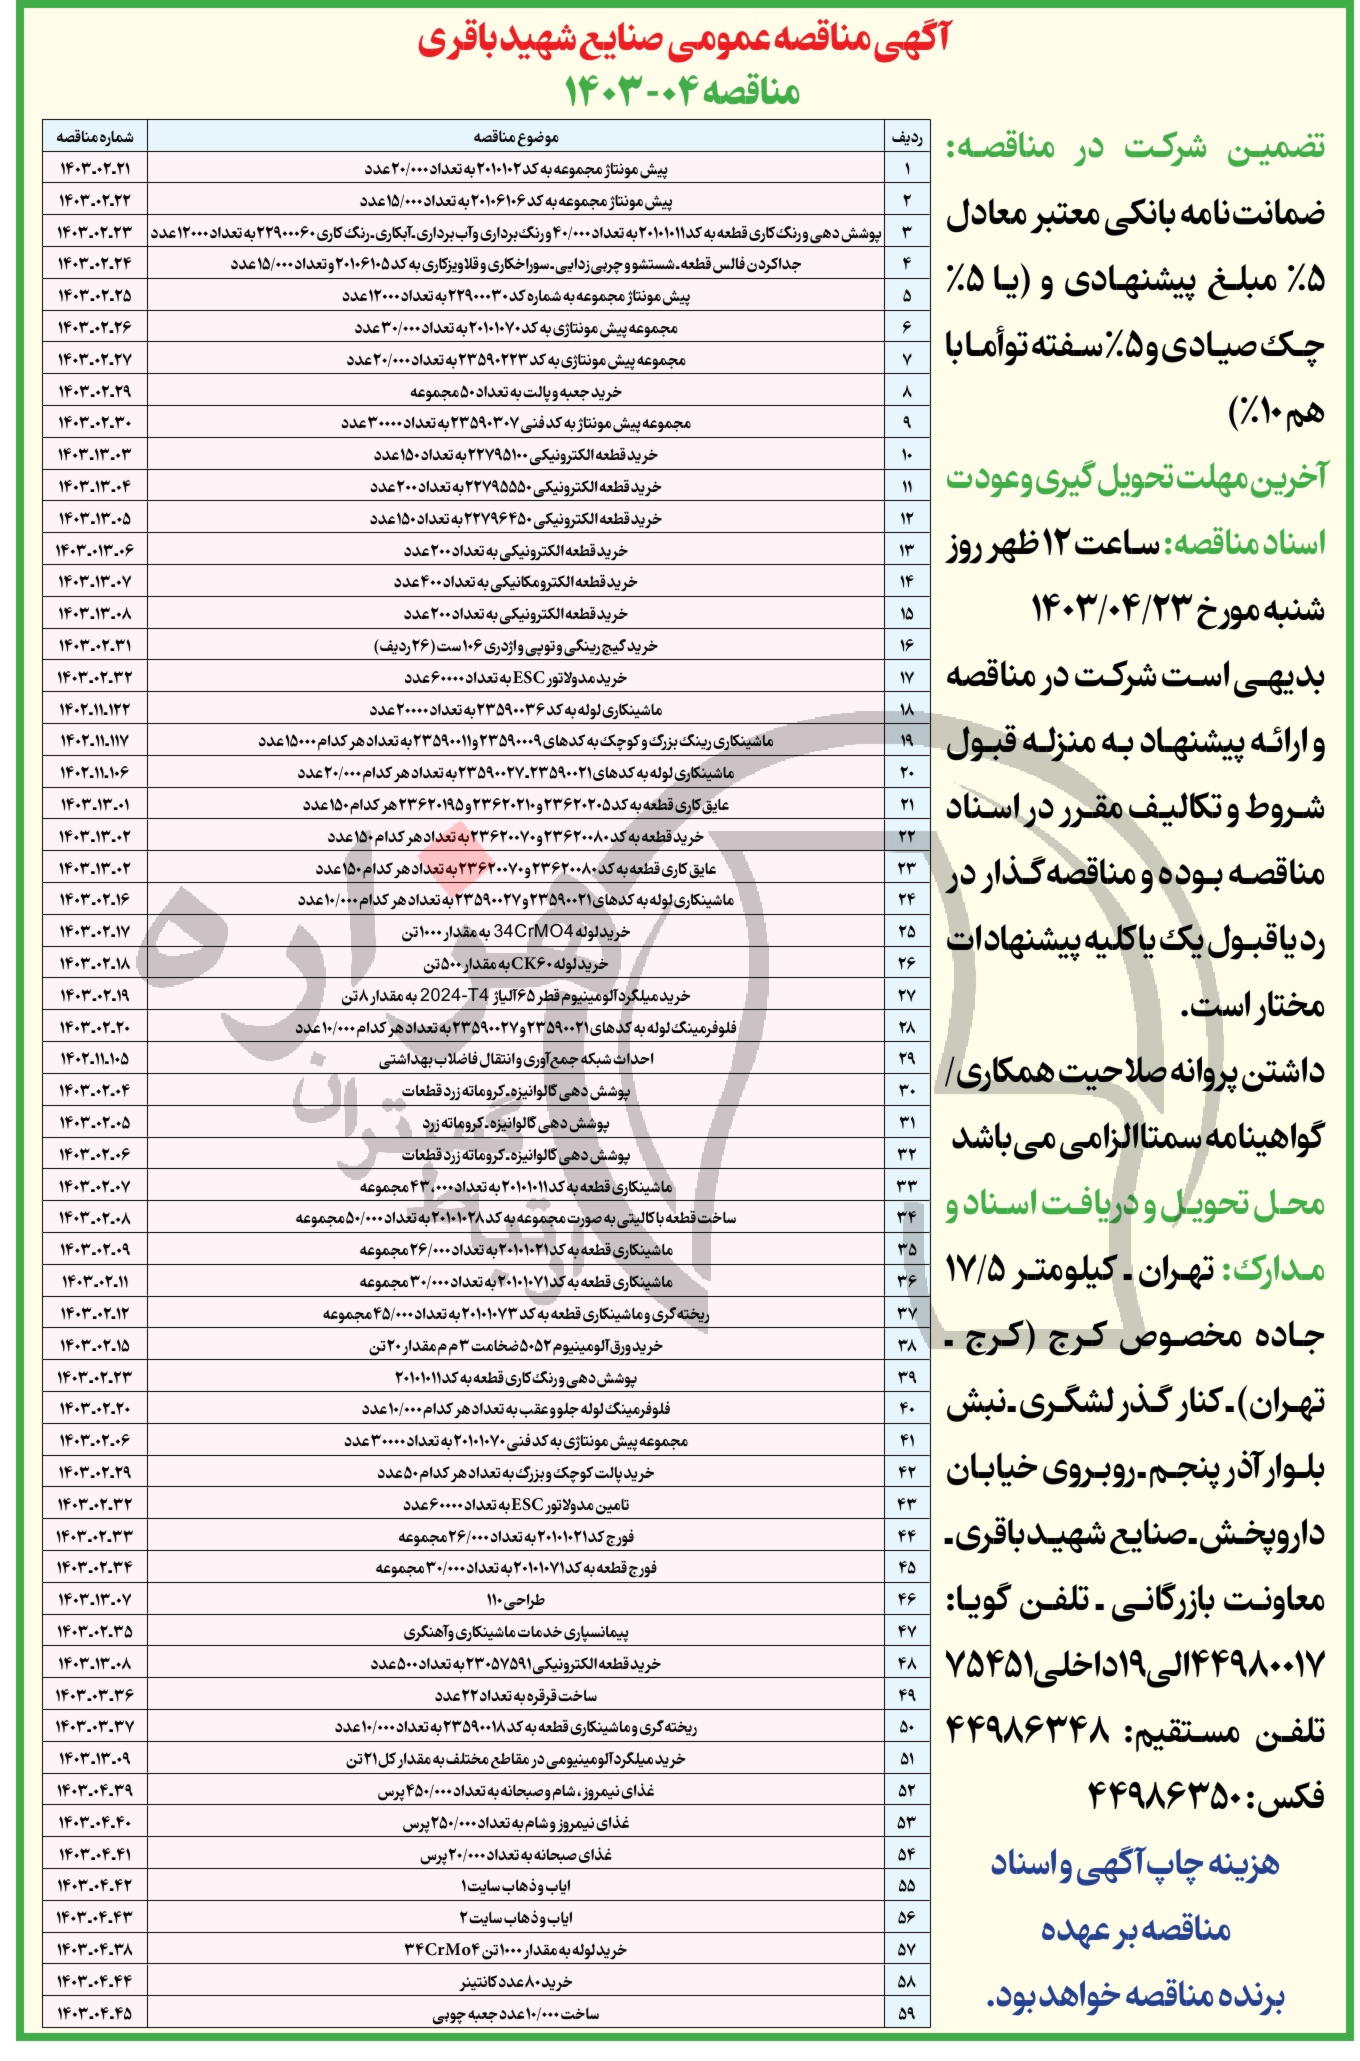 آگهی مناقصه عمومی صنایع شهید باقری
مناقصه ۰۴-۱۴۰۳
تضمین شرکت در مناقصه:
ضمانت‌نامه بانکی معتبر معادل
۵٪ مبلغ پیشنهادی و (یا ۵٪
چک صیادی و ۵٪ سفته توأما با
هم ۱۰٪)
آخرین مهلت تحویل گیری و عودت
اسناد مناقصه: ساعت ۱۲ ظهر روز
شنبه مورخ ۱۴۰۳/۰۴/۲۳
بدیهی است شرکت در مناقصه
و ارائه پیشنهاد به منزله قبول
شروط و تکالیف مقرر در اسناد
مناقصه بوده و مناقصه‌گذار در
رد یا قبول یک یا کلیه پیشنهادات
مختار است.
داشتن پروانه صلاحیت همکاری/
گواهینامه سمتا الزامی می‌باشد
محل تحویل و دریافت اسناد و
مدارک: تهران ـ کیلومتر ۱۷/۵
جاده مخصوص کرج (کرج ـ
تهران) ـ کنار گذر لشگری ـ نبش
بلوار آذر پنجم ـ روبروی خیابان
داروپخش ـ صنایع شهید باقری ـ
معاونت بازرگانی ـ تلفن گویا:
۴۴۹۸۰۰۱۷ الی ۱۹ داخلی ۷۵۴۵۱
تلفن مستقیم: ۴۴۹۸۶۳۴۸
فکس: ۴۴۹۸۶۳۵۰
هزینه چاپ آگهی و اسناد
مناقصه بر عهده
برنده مناقصه خواهد بود.
ردیف موضوع مناقصه شماره مناقصه
۱ پیش مونتاژ مجموعه به کد ۲۰۱۰۱۰۲ به تعداد ۲۰/۰۰۰ عدد ۱۴۰۳-۰۲-۲۱
۲ پیش مونتاژ مجموعه به کد ۲۰۱۰۶۱۰۶ به تعداد ۱۵/۰۰۰ عدد ۱۴۰۳-۰۲-۲۲
۳ پوشش دهی و رنگ کاری قطعه به کد ۲۰۱۰۱۰۱۱ به تعداد ۴۰/۰۰۰ و رنگ برداری و آب برداری ـ آبکاری ـ رنگ کاری ۲۲۹۰۰۰۶۰ به تعداد ۱۲۰۰۰ عدد ۱۴۰۳-۰۲-۲۳
۴ جدا کردن فالس قطعه ـ شستشو و چربی زدایی ـ سوراخکاری و قلاویزکاری به کد ۲۰۱۰۶۱۰۵ و تعداد ۱۵/۰۰۰ عدد ۱۴۰۳-۰۲-۲۴
۵ پیش مونتاژ مجموعه به شماره کد ۲۲۹۰۰۰۳۰ به تعداد ۱۲۰۰۰ عدد ۱۴۰۳-۰۲-۲۵
۶ مجموعه پیش مونتاژی به کد ۲۰۱۰۱۰۷۰ به تعداد ۳۰/۰۰۰ عدد ۱۴۰۳-۰۲-۲۶
۷ مجموعه پیش مونتاژی به کد ۲۳۵۹۰۲۲۳ به تعداد ۲۰/۰۰۰ عدد ۱۴۰۳-۰۲-۲۷
۸ خرید جعبه و پالت به تعداد ۵۰ مجموعه ۱۴۰۳-۰۲-۲۹
۹ مجموعه پیش مونتاژ به کد فنی ۲۳۵۹۰۳۰۷ به تعداد ۳۰۰۰۰ عدد ۱۴۰۳-۰۲-۳۰
۱۰ خرید قطعه الکترونیکی ۲۲۷۹۵۱۰۰ به تعداد ۱۵۰ عدد ۱۴۰۳-۱۳-۰۳
۱۱ خرید قطعه الکترونیکی ۲۲۷۹۵۵۵۰ به تعداد ۲۰۰ عدد ۱۴۰۳-۱۳-۰۴
۱۲ خرید قطعه الکترونیکی ۲۲۷۹۶۴۵۰ به تعداد ۱۵۰ عدد ۱۴۰۳-۱۳-۰۵
۱۳ خرید قطعه الکترونیکی به تعداد ۲۰۰ عدد ۱۴۰۳-۰۱۳-۰۶
۱۴ خرید قطعه الکترومکانیکی به تعداد ۴۰۰ عدد ۱۴۰۳-۱۳-۰۷
۱۵ خرید قطعه الکترونیکی به تعداد ۲۰۰ عدد ۱۴۰۳-۱۳-۰۸
۱۶ خرید گیج رینگی و توپی و اژدری ۱۰۶ ست (۲۶ ردیف) ۱۴۰۳-۰۲-۳۱
۱۷ خرید مدولاتور ESC به تعداد ۶۰۰۰۰ عدد ۱۴۰۳-۰۲-۳۲
۱۸ ماشینکاری لوله به کد ۲۳۵۹۰۰۳۶ به تعداد ۲۰۰۰۰ عدد ۱۴۰۲-۱۱-۱۲۲
۱۹ ماشینکاری رینگ بزرگ و کوچک به کدهای ۲۳۵۹۰۰۰۹ و ۲۳۵۹۰۰۱۱ به تعداد هر کدام ۱۵۰۰۰ عدد ۱۴۰۲-۱۱-۱۱۷
۲۰ ماشینکاری لوله به کدهای ۲۳۵۹۰۰۲۱ ـ ۲۳۵۹۰۰۲۷ به تعداد هر کدام ۲۰/۰۰۰ عدد ۱۴۰۲-۱۱-۱۰۶
۲۱ عایق کاری قطعه به کد ۲۳۶۲۰۲۰۵ و ۲۳۶۲۰۲۱۰ و ۲۳۶۲۰۱۹۵ هر کدام ۱۵۰ عدد ۱۴۰۳-۱۳-۰۱
۲۲ خرید قطعه به کد ۲۳۶۲۰۰۸۰ و ۲۳۶۲۰۰۷۰ به تعداد هر کدام ۱۵۰ عدد ۱۴۰۳-۱۳-۰۲
۲۳ عایق کاری قطعه به کد ۲۳۶۲۰۰۸۰ و ۲۳۶۲۰۰۷۰ به تعداد هر کدام ۱۵۰ عدد ۱۴۰۳-۱۳-۰۲
۲۴ ماشینکاری لوله به کدهای ۲۳۵۹۰۰۲۱ و ۲۳۵۹۰۰۲۷ به تعداد هر کدام ۱۰/۰۰۰ عدد ۱۴۰۳-۰۲-۱۶
۲۵ خرید لوله 34CrMO4 به مقدار ۱۰۰۰ تن ۱۴۰۳-۰۲-۱۷
۲۶ خرید لوله CK۶۰ به مقدار ۵۰۰ تن ۱۴۰۳-۰۲-۱۸
۲۷ خرید میلگرد آلومینیوم قطر ۶۵ آلیاژ 2024-T4 به مقدار ۸ تن ۱۴۰۳-۰۲-۱۹
۲۸ فلوفرمینگ لوله به کدهای ۲۳۵۹۰۰۲۱ و ۲۳۵۹۰۰۲۷ به تعداد هر کدام ۱۰/۰۰۰ عدد ۱۴۰۳-۰۲-۲۰
۲۹ احداث شبکه جمع‌آوری و انتقال فاضلاب بهداشتی ۱۴۰۲-۱۱-۱۰۵
۳۰ پوشش دهی گالوانیزه ـ کروماته زرد قطعات ۱۴۰۳-۰۲-۰۴
۳۱ پوشش دهی گالوانیزه ـ کروماته زرد ۱۴۰۳-۰۲-۰۵
۳۲ پوشش دهی گالوانیزه ـ کروماته زرد قطعات ۱۴۰۳-۰۲-۰۶
۳۳ ماشینکاری قطعه به کد ۲۰۱۰۱۰۱۱ به تعداد ۴۳،۰۰۰ مجموعه ۱۴۰۳-۰۲-۰۷
۳۴ ساخت قطعه باکالیتی به صورت مجموعه به کد ۲۰۱۰۱۰۲۸ به تعداد ۵۰/۰۰۰ مجموعه ۱۴۰۳-۰۲-۰۸
۳۵ ماشینکاری قطعه به کد ۲۰۱۰۱۰۲۱ به تعداد ۲۶/۰۰۰ مجموعه ۱۴۰۳-۰۲-۰۹
۳۶ ماشینکاری قطعه به کد ۲۰۱۰۱۰۷۱ به تعداد ۳۰/۰۰۰ مجموعه ۱۴۰۳-۰۲-۱۱
۳۷ ریخته گری و ماشینکاری قطعه به کد ۲۰۱۰۱۰۷۳ به تعداد ۴۵/۰۰۰ مجموعه ۱۴۰۳-۰۲-۱۲
۳۸ خرید ورق آلومینیوم ۵۰۵۲ ضخامت ۳ م م مقدار ۲۰ تن ۱۴۰۳-۰۲-۱۵
۳۹ پوشش دهی و رنگ کاری قطعه به کد ۲۰۱۰۱۰۱۱ ۱۴۰۳-۰۲-۲۳
۴۰ فلوفرمینگ لوله جلو و عقب به تعداد هر کدام ۱۰/۰۰۰ عدد ۱۴۰۳-۰۲-۲۰
۴۱ مجموعه پیش مونتاژی به کد فنی ۲۰۱۰۱۰۷۰ به تعداد ۳۰۰۰۰ عدد ۱۴۰۳-۰۲-۰۶
۴۲ خرید پالت کوچک و بزرگ به تعداد هر کدام ۵۰ عدد ۱۴۰۳-۰۲-۲۹
۴۳ تامین مدولاتور ESC به تعداد ۶۰۰۰۰ عدد ۱۴۰۳-۰۲-۳۲
۴۴ فورج کد ۲۰۱۰۱۰۲۱ به تعداد ۲۶/۰۰۰ مجموعه ۱۴۰۳-۰۲-۳۳
۴۵ فورج قطعه به کد ۲۰۱۰۱۰۷۱ به تعداد ۳۰/۰۰۰ مجموعه ۱۴۰۳-۰۲-۳۴
۴۶ طراحی ۱۱۰ ۱۴۰۳-۱۳-۰۷
۴۷ پیمانسپاری خدمات ماشینکاری و آهنگری ۱۴۰۳-۰۲-۳۵
۴۸ خرید قطعه الکترونیکی ۲۳۰۵۷۵۹۱ به تعداد ۵۰۰ عدد ۱۴۰۳-۱۳-۰۸
۴۹ ساخت قرقره به تعداد ۲۲ عدد ۱۴۰۳-۰۳-۳۶
۵۰ ریخته گری و ماشینکاری قطعه به کد ۲۳۵۹۰۰۱۸ به تعداد ۱۰/۰۰۰ عدد ۱۴۰۳-۰۳-۳۷
۵۱ خرید میلگرد آلومینیومی در مقاطع مختلف به مقدار کل ۲۱ تن ۱۴۰۳-۱۳-۰۹
۵۲ غذای نیمروز ، شام و صبحانه به تعداد ۴۵۰/۰۰۰ پرس ۱۴۰۳-۰۴-۳۹
۵۳ غذای نیمروز و شام به تعداد ۲۵۰/۰۰۰ پرس ۱۴۰۳-۰۴-۴۰
۵۴ غذای صبحانه به تعداد ۲۰/۰۰۰ پرس ۱۴۰۳-۰۴-۴۱
۵۵ ایاب و ذهاب سایت ۱ ۱۴۰۳-۰۴-۴۲
۵۶ ایاب و ذهاب سایت ۲ ۱۴۰۳-۰۴-۴۳
۵۷ خرید لوله به مقدار ۱۰۰۰ تن ۳۴CrMo۴ ۱۴۰۳-۰۴-۳۸
۵۸ خرید ۸۰ عدد کانتینر ۱۴۰۳-۰۴-۴۴
۵۹ ساخت ۱۰/۰۰۰ عدد جعبه چوبی ۱۴۰۳-۰۴-۴۵
هزاره
ارتباط
گستران